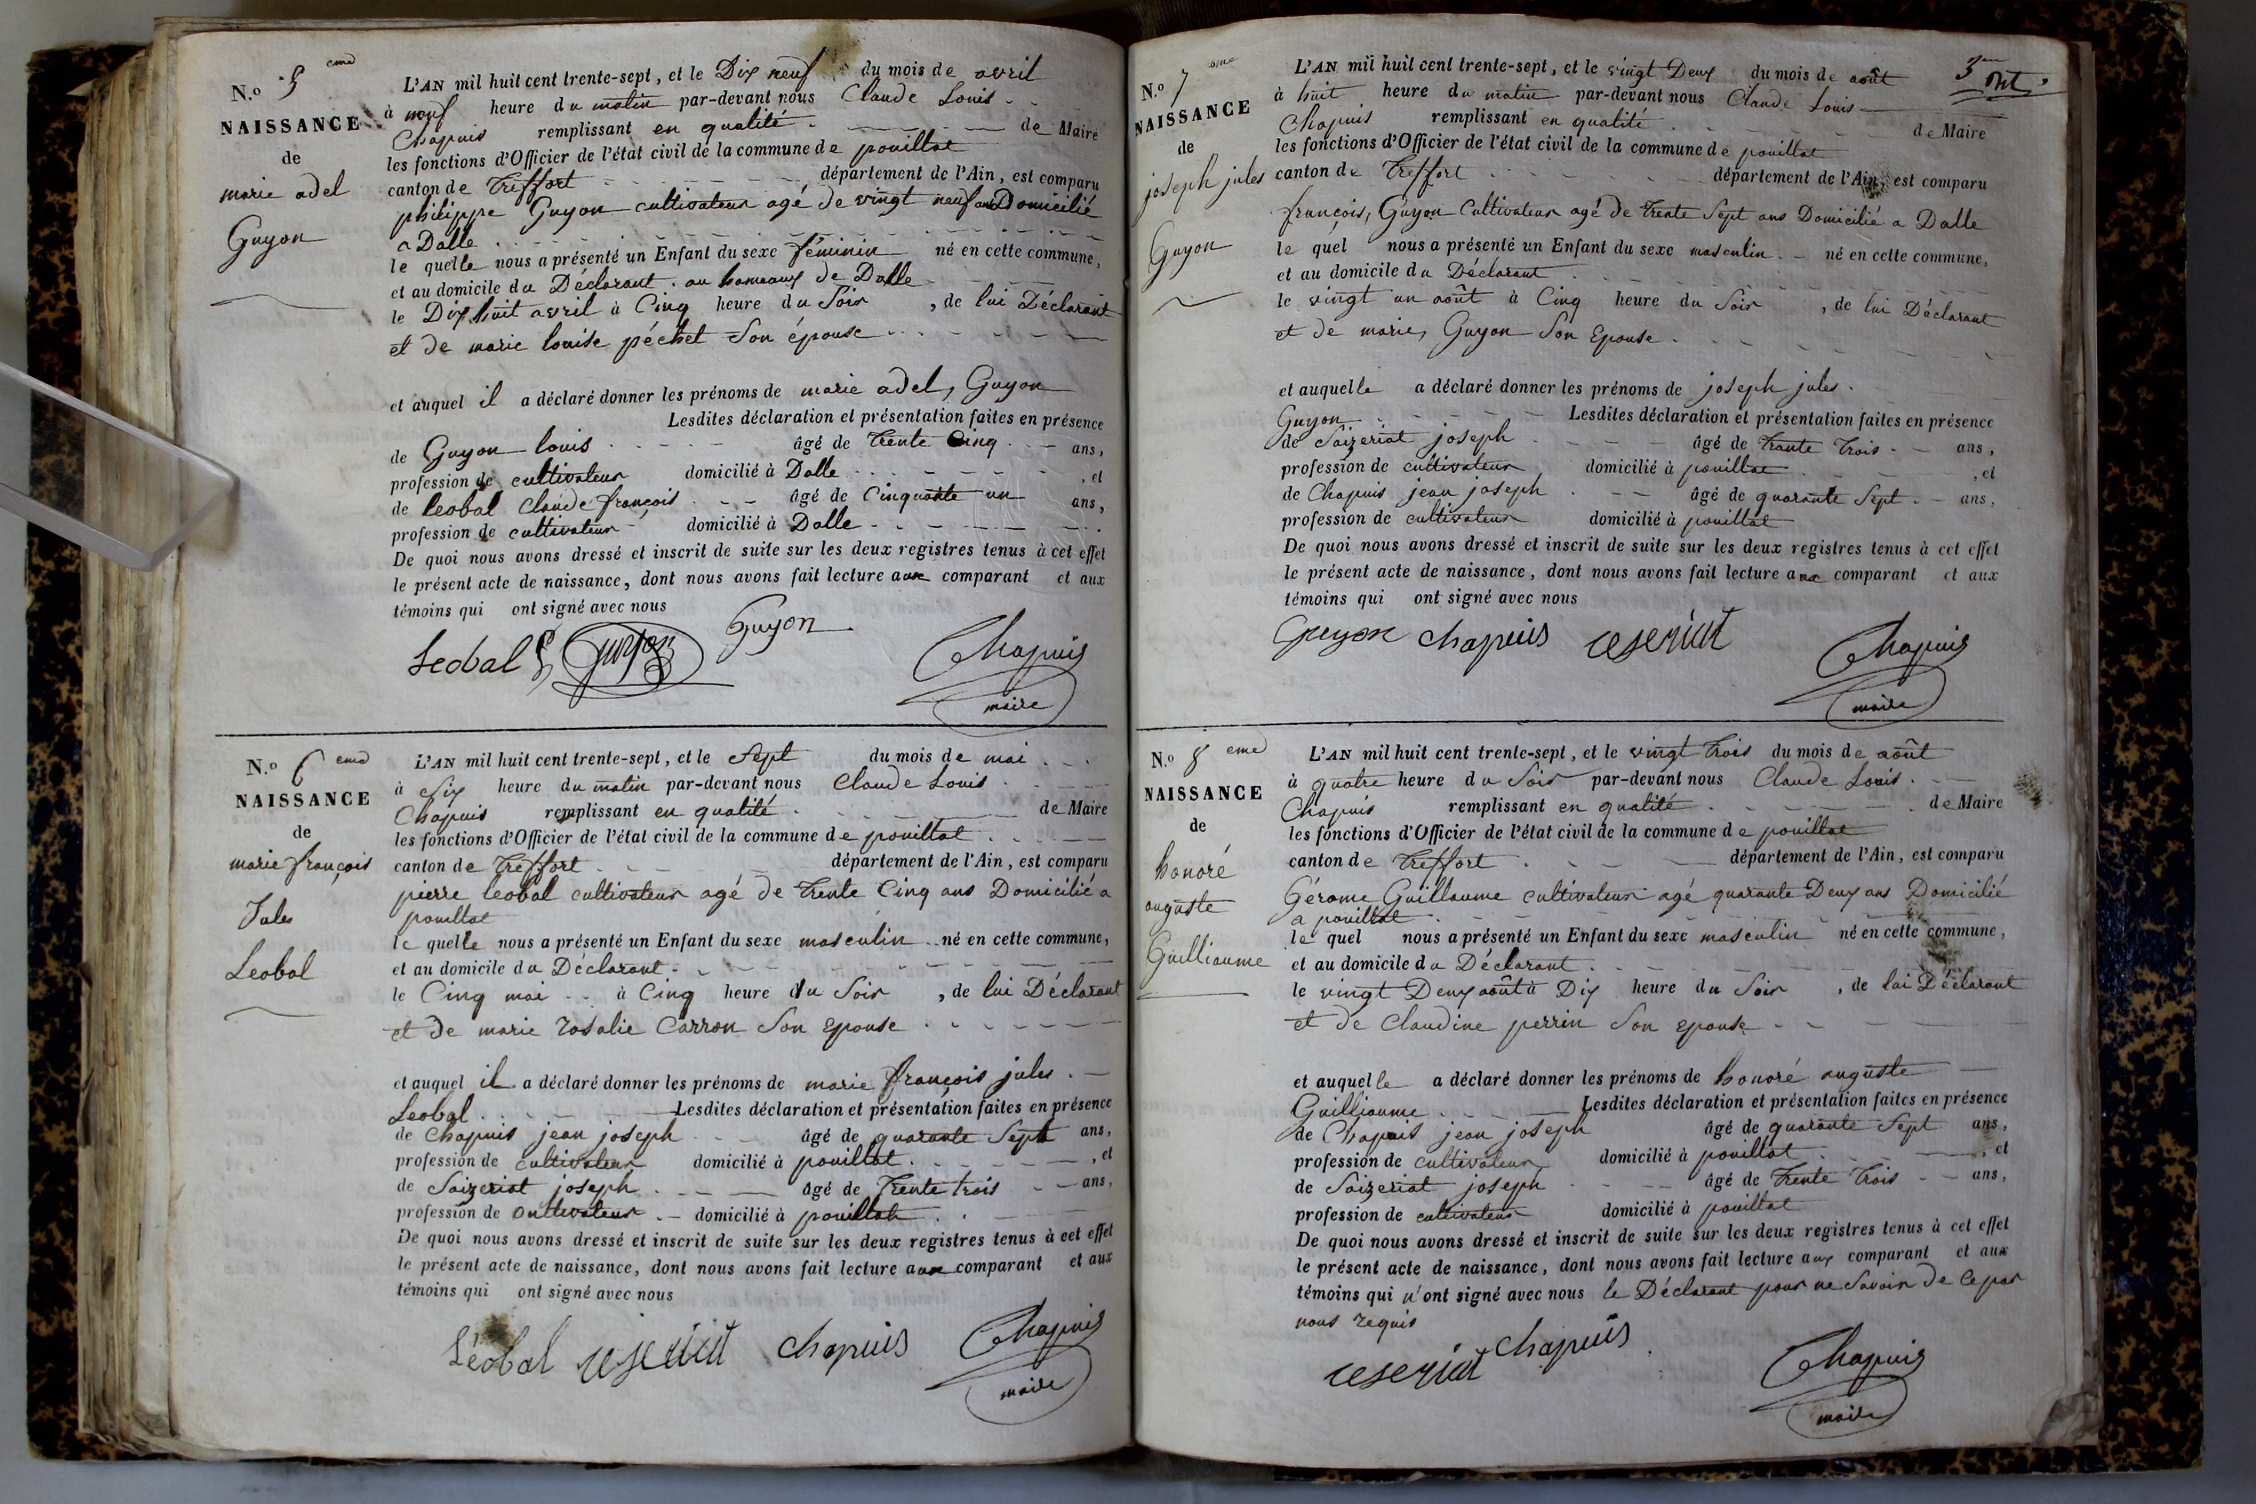 N.o 5 eme
NAISSANCE
de
marie adel
Guyon
L'AN mil huit cent trente-sept, et le Dix neuf du mois de avril
à neuf heure du matin par-devant nous Claude Louis
Chapuis remplissant en qualité de Maire
les fonctions d'Officier de l'état civil de la commune de pouillat
canton de Treffort département de l'Ain, est comparu
philippe Guyon cultivateur agé de vingt neuf ans Domicilié
a Dalle
le quelle nous a présenté un Enfant du sexe féminin né en cette commune,
et au domicile du Déclarant au hameaux de Dalle
le Dix huit avril à Cinq heure du Soir, de lui Déclarant
et de marie louise péchet Son épouse
et auquel il a déclaré donner les prénoms de marie adel, Guyon
Lesdites déclaration et présentation faites en présence
de Guyon louis âgé de trente Cinq ans,
profession de cultivateur domicilié à Dalle, et
de leobal Claude françois âgé de Cinquante un ans,
profession de cultivateur domicilié à Dalle
De quoi nous avons dressé et inscrit de suite sur les deux registres tenus à cet effet
le présent acte de naissance, dont nous avons fait lecture aux comparant et aux
témoins qui ont signé avec nous
Leobal Guyon Guyon Chapuis
maire
N.o 6 eme
NAISSANCE
de
marie françois
Jules
Leobal
L'AN mil huit cent trente-sept, et le Sept du mois de mai
à Six heure du matin par-devant nous Claude Louis
Chapuis remplissant en qualité de Maire
les fonctions d'Officier de l'état civil de la commune de pouillat
canton de Treffort département de l'Ain, est comparu
pierre leobal cultivateur agé de trente Cinq ans Domicilié a
pouillat
le quelle nous a présenté un Enfant du sexe masculin né en cette commune,
et au domicile du Déclarant
le Cinq mai à Cinq heure du Soir, de lui Déclarant
et de marie rosalie Carron Son Epouse
et auquel il a déclaré donner les prénoms de marie françois jules
Leobal Lesdites déclaration et présentation faites en présence
de Chapuis jean joseph âgé de quarante Sept ans,
profession de cultivateur domicilié à pouillat, et
de Saizeriat joseph âgé de trente trois ans,
profession de cultivateur domicilié à pouillat
De quoi nous avons dressé et inscrit de suite sur les deux registres tenus à cet effet
le présent acte de naissance, dont nous avons fait lecture aux comparant et aux
témoins qui ont signé avec nous
Léobal chapuis Chapuis
maire
N.o 7 eme
NAISSANCE
de
joseph jules
Guyon
L'AN mil huit cent trente-sept, et le vingt Deux du mois de août
à huit heure du matin par-devant nous Claude Louis
Chapuis remplissant en qualité de Maire
les fonctions d'Officier de l'état civil de la commune de pouillat
canton de Treffort département de l'Ain, est comparu
françois, Guyon Cultivateur agé de trente Sept ans Domicilié a Dalle
le quel nous a présenté un Enfant du sexe masculin né en cette commune,
et au domicile du Déclarant
le vingt un août à Cinq heure du Soir, de lui Déclarant
et de marie, Guyon Son Epouse
et auquelle a déclaré donner les prénoms de joseph jules
Guyon Lesdites déclaration et présentation faites en présence
de Saizeriat joseph âgé de trante trois ans,
profession de cultivateur domicilié à pouillat, et
de Chapuis jean joseph âgé de quarante Sept ans,
profession de cultivateur domicilié à pouillat
De quoi nous avons dressé et inscrit de suite sur les deux registres tenus à cet effet
le présent acte de naissance, dont nous avons fait lecture aux comparant et aux
témoins qui ont signé avec nous
Guyon chapuis Chapuis
maire
N.o 8 eme
NAISSANCE
de
honoré
auguste
Guilliaume
L'AN mil huit cent trente-sept, et le vingt trois du mois de août
à quatre heure du Soir par-devant nous Claude Louis
Chapuis remplissant en qualité de Maire
les fonctions d'Officier de l'état civil de la commune de pouillat
canton de Treffort département de l'Ain, est comparu
Gérome Guillaume cultivateur agé quarante Deux ans Domicilié
a pouillat
le quel nous a présenté un Enfant du sexe masculin né en cette commune,
et au domicile du Déclarant
le vingt Deux août à Dix heure du Soir, de lui Déclarant
et de Claudine perrin Son epouse
et auquelle a déclaré donner les prénoms de honoré auguste
Guilliaume Lesdites déclaration et présentation faites en présence
de Chapuis jean joseph âgé de quarante Sept ans,
profession de cultivateur domicilié à pouillat, et
de Saizeriat joseph âgé de trente trois ans,
profession de cultivateur domicilié à pouillat
De quoi nous avons dressé et inscrit de suite sur les deux registres tenus à cet effet
le présent acte de naissance, dont nous avons fait lecture aux comparant et aux
témoins qui n'ont signé avec nous le Déclarant pour ne Savoir de ce par
nous requis
chapuis Chapuis
maire